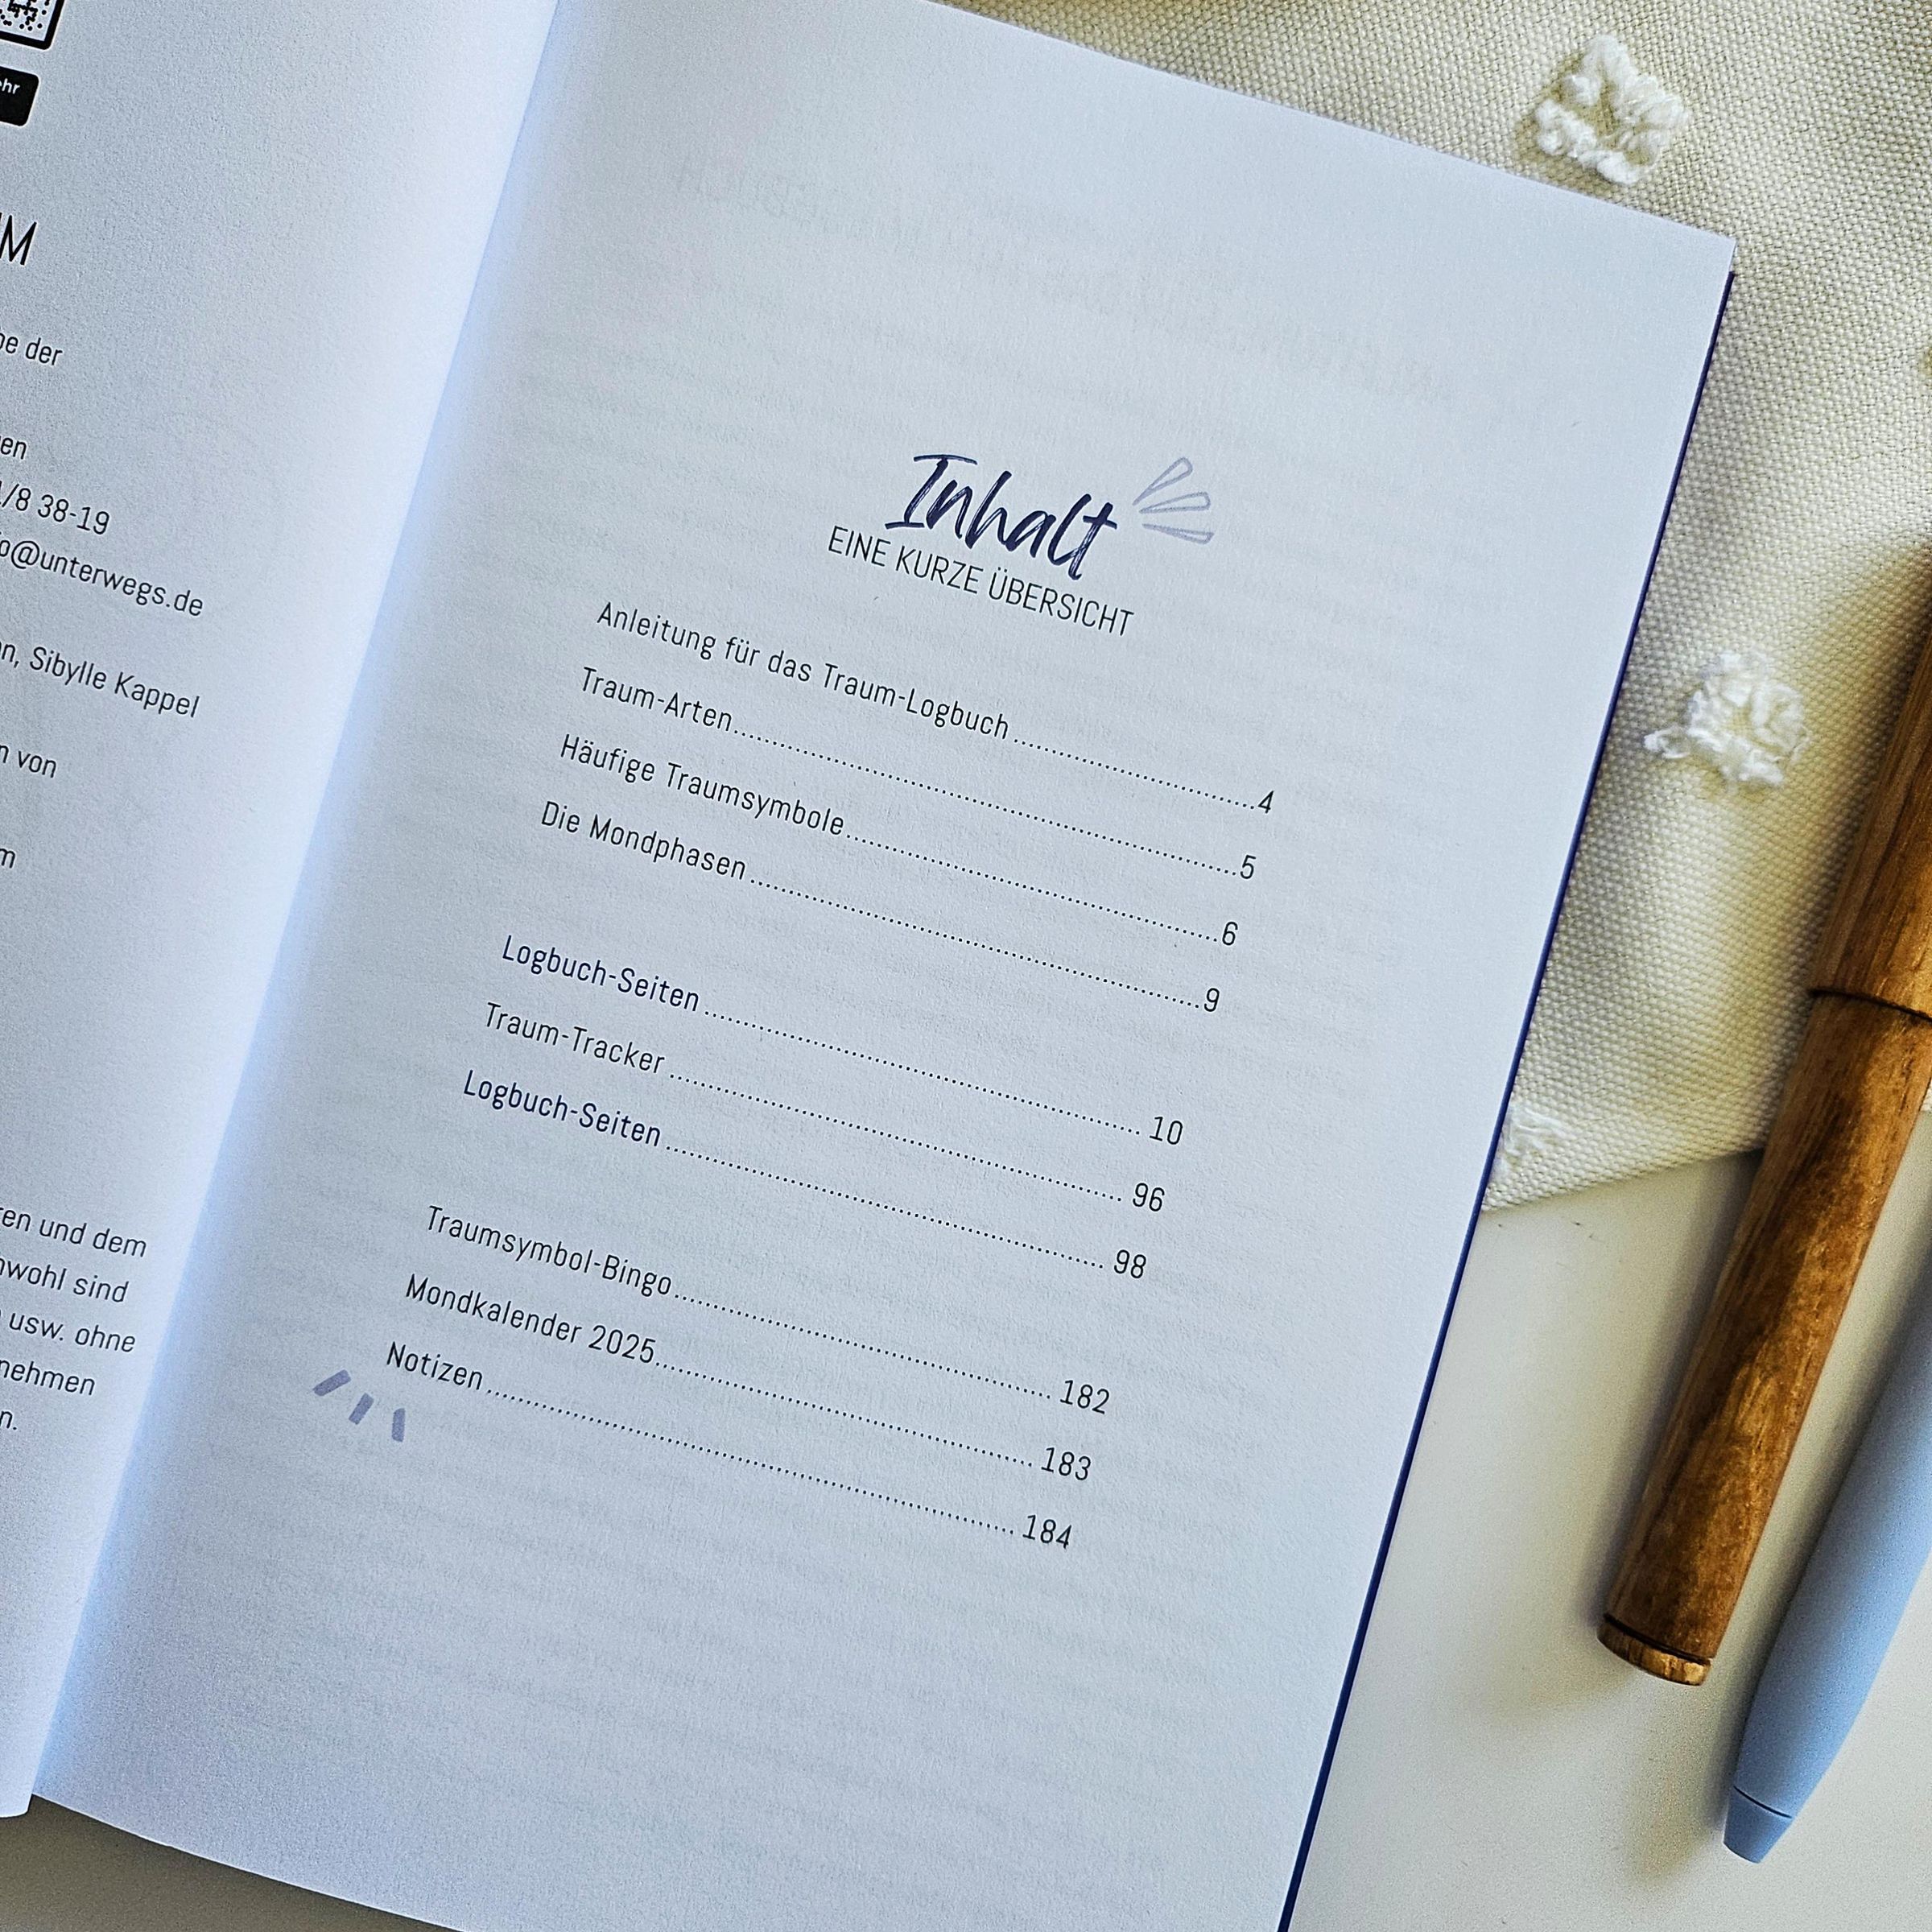 M
der
en
/8 38-19
@unterwegs.de
Sibylle Kappel
von
und dem
sind
usw. ohne
nehmen
Inhalt
EINE KURZE ÜBERSICHT
Anleitung für das Traum-Logbuch 4
Traum-Arten 5
Häufige Traumsymbole 6
Die Mondphasen 9
Logbuch-Seiten 10
Traum-Tracker 96
Logbuch-Seiten 98
Traumsymbol-Bingo 182
Mondkalender 2025 183
Notizen 184